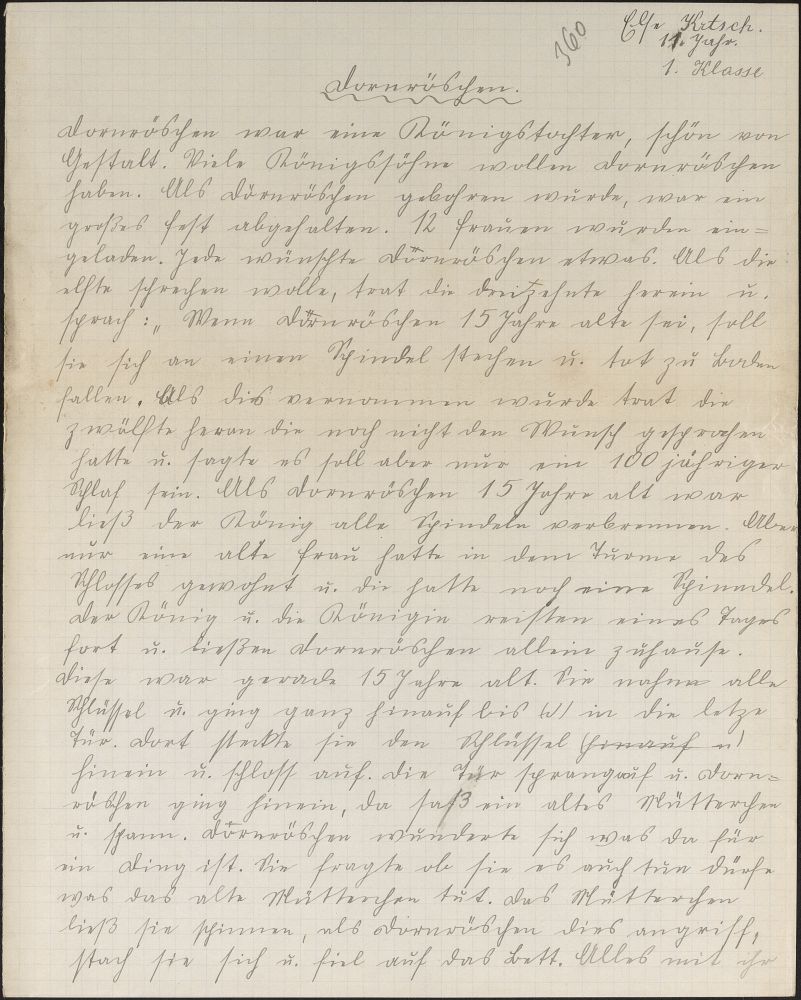 360
Else Krtsch.
11. Jahr.
1. Klasse
Dornröschen.
Dornröschen war eine Königstochter, schön von
Gestalt. Viele Königssöhne wollen Dornröschen
haben. Als Dörnröschen gebohren wurde, war ein
großes fest abgehalten. 12 frauen wurden ein=
geladen. Jede wünschte Dörnröschen etwas. Als die
elfte sprechen wolle, trat die dreizehnte herein u.
sprach: „Wenn Dörnröschen 15 Jahre alte sei, soll
sie sich an einen Spindel stechen u. tot zu Boden
fallen. Als dies vernommen wurde trat die
zwölfte heran die noch nicht den Wunsch gesprochen
hatte u. sagte es soll aber nur ein 100 jähriger
Schlaf sein. Als Dornröschen 15 Jahre alt war
ließ der König alle Spindeln verbrennen. Aber
nur eine alte frau hatte in dem Turme des
Schlosses gewohnt u. die hatte noch eine Spinndel.
Der König u. die Königin reisten eines Tages
fort u. ließen Dornröschen allein zuhause.
Diese war gerade 15 Jahre alt. Sie nahm alle
Schlüssel u. ging ganz hinauf bis in die letze
Tür. Dort steckte sie den Schlüssel (hinauf u)
hinein u. schloss auf. Die Tür sprang auf u. Dorn=
röschen ging hinein, da saß ein altes Mütterchen
u. spann. Dörnröschen wunderte sich was da für
ein Ding ist. Sie fragte ob sie es auch tun dürfe
was das alte Mütterchen tut. Das Mütterchen
ließ sie spinnen, als Dornröschen dies angriff,
stach sie sich u. fiel auf das Bett. Alles mit ihr